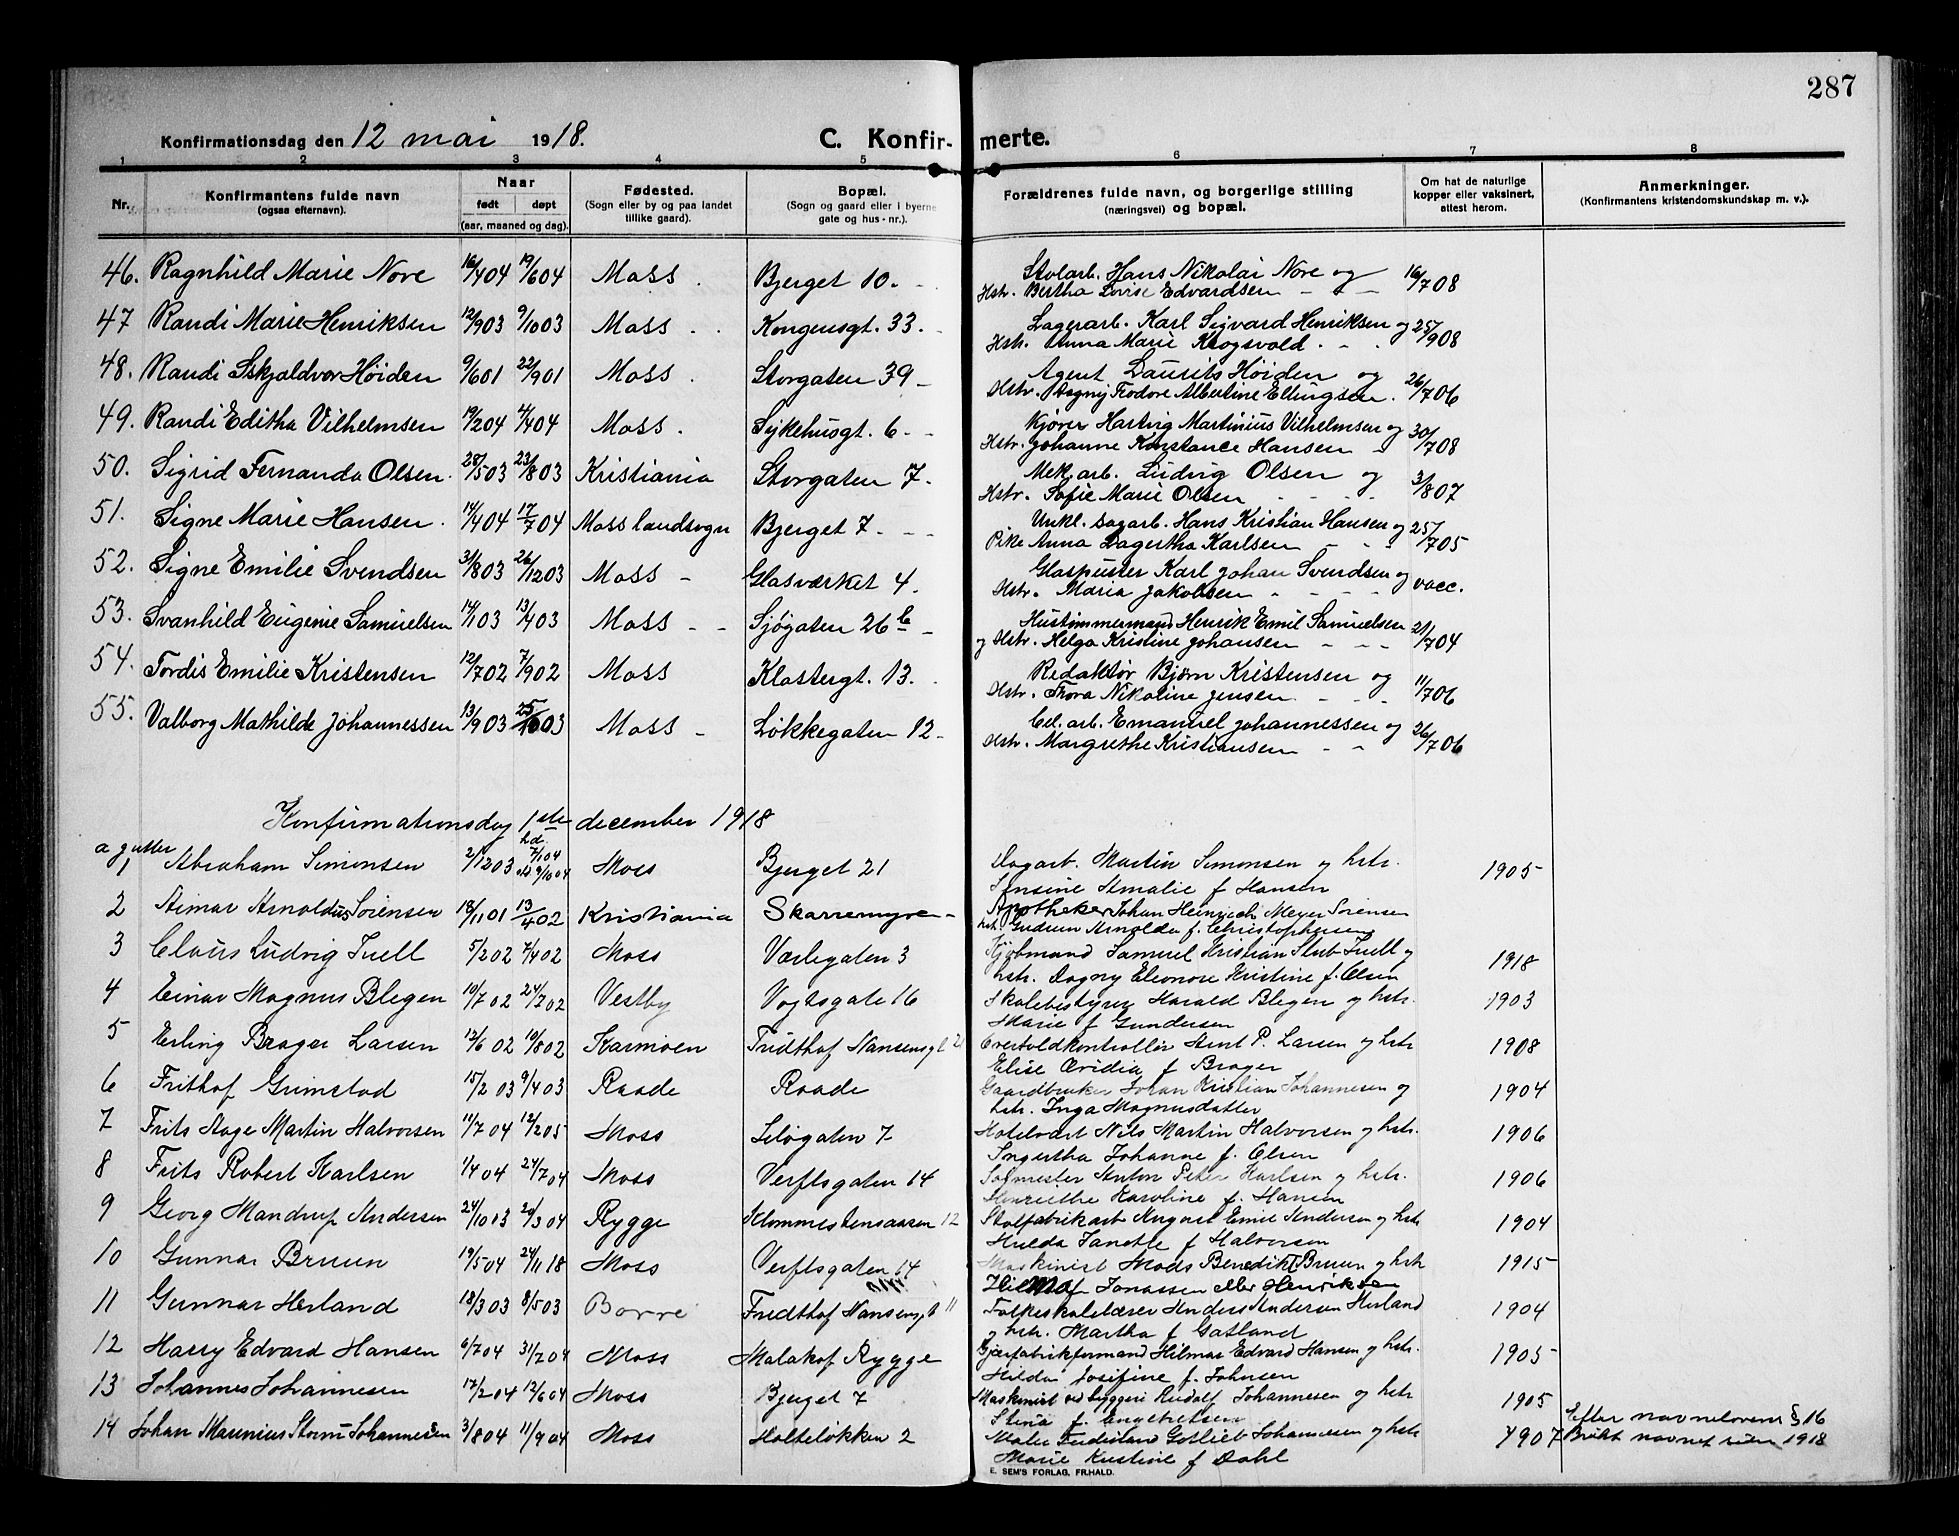 287
Konfirmationsdag den 12 mai 1918.
C. Konfir-merte.
1 2 3 4 5 6 7 8
Nr.
Konfirmantens fulde navn (ogsaa efternavn).
Naar født døpt (aar, maaned og dag).
Fødested. (Sogn eller by og paa landet tillike gaard).
Bopæl. (Sogn og gaard eller i byerne gate og hus-nr.).
Forældrenes fulde navn, og borgerlige stilling (næringsvei) og bopæl.
Om hat de naturlige kopper eller vaksinert, attest herom.
Anmerkninger. (Konfirmantens kristendomskundskap m. v.).
46. Ragnhild Marie Nore 16/4 04 19/6 04 Moss Bjerget 10. Stolarb. Hans Nikolai Nore og 16/7 08
Hstr. Bertha Lovise Edvardsen
47 Randi Marie Henriksen 12/9 03 9/10 03 Moss Kongensgt. 33. Lagerarb. Karl Sigvard Henriksen og 25/9 08
Hstr. Anna Marie Krogsvold
48. Randi Skjaldvor Høiden 9/6 01 22/9 01 Moss Storgaten 39 Agent Laurits Høiden og 26/7 06
Hstr. Dagny Frodore Albertine Ellingsen.
49. Randi Editha Vilhelmsen 19/2 04 4/4 04 Moss. Sykehusgt. 6 Kjører Hartvig Martinius Vilhelmsen og 30/7 08
Hstr. Johanne Konstance Hansen
50. Sigrid Fernanda Olsen. 28/5 03 23/8 03 Kristiania Storgaten 7. Mek. arb. Ludvig Olsen og 3/8 07
Hstr. Sofie Marie Olsen
51. Signe Marie Hansen. 14/4 04 17/7 04 Moss landsogn Bjerget 7. Unkl. dagarb. Hans Kristian Hansen og 25/7 05
Pike Anna Dagertha Karlsen
52. Signe Emilie Svendsen 31/8 03 26/12 03 Moss Glasværket 4. Glaspuster Karl Johan Svendsen og vacc.
Hstr. Maria Jakobsen
53. Svanhild Eugenie Samuelsen 14/1 03 13/4 03 Moss Sjøgaten 26 b Hustømmermand Henrik Emil Samuelsen 21/7 04
og Hstr. Helga Kristine Johansen
54. Tordis Emilie Kristensen 12/7 02 7/9 02 Moss Klostergt. 13. Redaktør Bjørn Kristensen og 11/7 06
Hstr. Thora Nikoline Jensen
55. Valborg Mathilde Johannessen 13/9 03 25/10 03 Moss Løkkegaten 12 Cel. arb. Emanuel Johannessen og 26/7 06
Hstr. Margrethe Kristiansen
Konfirmationsdag 1ste december 1918
a gutter
1 Abraham Simonsen 2/12 03 hd. 7/1 04 9/10 04 Moss Bjerget 21 Dagarb. Martin Simonsen og hstr. 1905
Jensine Amalie f Hansen
2 Aimar Arnoldus Sørensen 18/11 01 13/4 02 Kristiania Skarremyren Apotheker Johan Heinrich Meyer Sørensen
hstr. Gudrun Arnolda f. Christophersen
3 Claus Ludvig Tuell 5/2 02 7/4 02 Moss Værlegaten 3 Kjøbmand Samuel Kristian Stub Tuell og 1918
hstr. Dagny Eleonore Kristine f. Olsen
4 Einar Magnus Blegen 10/7 02 24/7 02 Vestby Vogtsgate 16 Skolebestyrer Harald Blegen og hstr. 1903
Marie f Gundersen
5 Erling Brager Larsen 12/6 02 10/8 02 Karmøen Fridthof Nansensgt 21 Overtoldkontrollør Arnt P. Larsen og hstr 1908
Elise Ovidia f Brager
6 Frithof Grimstad 15/2 03 9/4 03 Raade Raade Gaardbruker Johan Kristian Johannesen og 1904
hstr. Inga Magnusdatter
7 Frits Aage Martin Halvorsen 11/7 04 12/2 05 Moss Seløgaten 7 Hotelvært Nils Martin Halvorsen og hstr. 1906
Ingertha Johanne f. Olsen
8 Frits Robert Karlsen 1/4 04 24/7 04 Moss Verftsgaten 14 Anton Peter Karlsen og hstr. 1906
Henriette Karoline f. Hansen
9 Georg Mandrup Andersen 24/10 03 20/3 04 Rygge Klommestensaasen 12 Stolfabrikarb August Emil Andersen og hstr 1904
Hulda Janette f Halvorsen
10 Gunnar Bruun 19/5 04 24/11 18 Moss Verftsgaten 14 Maskinist Mads Benedikt Bruun og hstr 1915
Hilma f Jonassen eller Henriksen
11 Gunnar Herland 18/3 03 8/5 03 Borre Fridthof Nansensgt 11 Folkeskolelærer Anders Andersen Herland 1904
og hstr. Martha f Gatland
12 Harry Edvard Hansen 6/7 04 31/7 04 Moss Malakof Rygge Gjærfabrikformand Hilmar Edvard Hansen og hstr. 1905
Hilda Josifine f. Johnsen
13 Johannes Johannesen 17/2 04 12/6 04 Moss Bjerget 7 Maskinist ved bryggeri Rudolf Johannesen og hstr 1905
Stina f. Engebretsen
14 Johan Marinius Storm Johannesen 3/8 04 11/9 04 Moss Holteløkken 2 Maler Ferdinand Gotlieb Johannesen og hstr 1907 Efter navneloven § 16
Marie Kristine f Dahl Brukt navnet siden 1918
E. SEM'S FORLAG, FR.HALD.